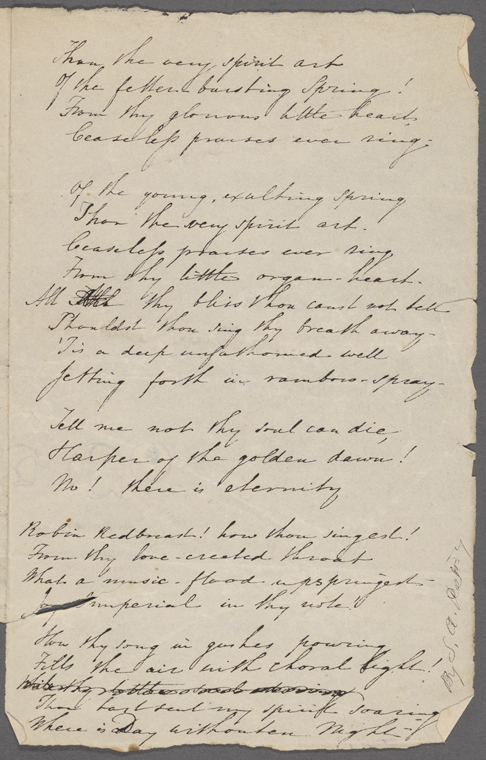 Thou the very spirit art
Of the fetter-bursting Spring!
From thy glorious little heart
Ceaseless praises ever ring.
Of the young, exulting Spring
Thou the very spirit art.
Ceaseless praises ever ring
From thy little organ-heart.
All thy bliss thou canst not tell
Shouldst thou sing thy breath away-
'Tis a deep unfathomed well
Jetting forth in rainbow-spray-
Tell me not thy soul can die,
Harper of the golden dawn!
No! there is eternity
Robin Redbreast! how thou singest!
From thy love-created throat
What a music-flood upspringest
Joy Immperial in thy note!
How thy song in gushes pouring
Fills the air with choral light!
While thy little soul
Thou hast sent my spirit soaring
Where is Day withouten Night!
By S. A.